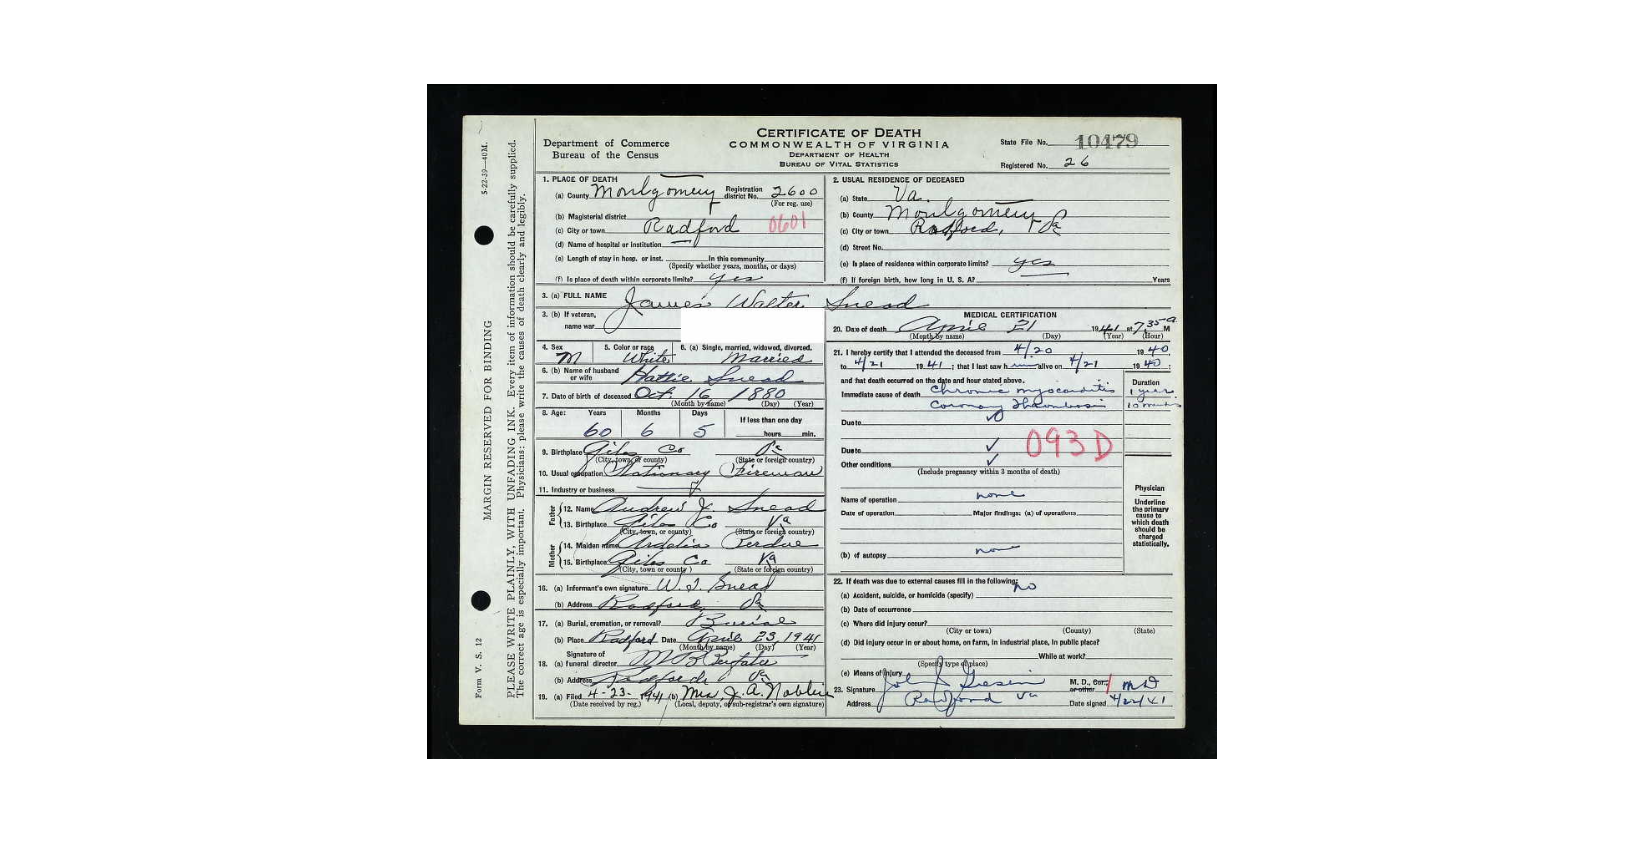 CERTIFICATE OF DEATH
COMMONWEALTH OF VIRGINIA
DEPARTMENT OF HEALTH
BUREAU OF VITAL STATISTICS
Department of Commerce
Bureau of the Census
State File No. 10479
Registered No. 26
5-22-39—40M.
MARGIN RESERVED FOR BINDING
Form V. S. 12
PLEASE WRITE PLAINLY, WITH UNFADING INK. Every item of information should be carefully supplied.
The correct age is especially important. Physicians: please write the causes of death clearly and legibly.
1. PLACE OF DEATH
(a) County Montgomery Registration district No. 2600
(For reg. use)
(b) Magisterial district
(c) City or town Radford 0601
(d) Name of hospital or institution
(e) Length of stay in hosp. or inst. In this community
(Specify whether years, months, or days)
(f) Is place of death within corporate limits? yes
2. USUAL RESIDENCE OF DECEASED
(a) State Va.
(b) County Montgomery
(c) City or town Radford, Va
(d) Street No.
(e) Is place of residence within corporate limits? yes
(f) If foreign birth, how long in U. S. A? Years
3. (a) FULL NAME James Walter Snead
3. (b) If veteran,
name war
4. Sex M
5. Color or race White
6. (a) Single, married, widowed, divorced. Married
6. (b) Name of husband or wife Hattie Snead
7. Date of birth of deceased Oct. 16 1880
(Month by name) (Day) (Year)
8. Age: Years Months Days If less than one day
60 6 5 hours min.
9. Birthplace Giles Co Va
(City, town, or county) (State or foreign country)
10. Usual occupation Stationary Fireman
11. Industry or business
Father
12. Name Andrew J. Snead
13. Birthplace Giles Co Va
(City, town, or county) (State or foreign country)
Mother
14. Maiden name Ardelia Perdue
15. Birthplace Giles Co Va
(City, town or county) (State or foreign country)
16. (a) Informant's own signature W. J. Snead
(b) Address Radford, Va
17. (a) Burial, cremation, or removal? Burial
(b) Place Radford Date April 23, 1941
(Month by name) (Day) (Year)
Signature of
18. (a) funeral director
(b) Address Radford Va
19. (a) Filed 4-23-1941 (b) Mrs. J. A. Noblin
(Date received by reg.) (Local, deputy, or sub-registrar's own signature)
MEDICAL CERTIFICATION
20. Date of death April 21 1941 at 7:35 a M
(Month by name) (Day) (Year) (Hour)
21. I hereby certify that I attended the deceased from 4/20 1940.
to 4/21 1941; that I last saw him alive on 4/21 1940;
and that death occurred on the date and hour stated above.
Duration
Immediate cause of death Chronic myocarditis 1 year
Coronary Thrombosis 10 minutes
Due to
Due to 093D
Other conditions
(Include pregnancy within 3 months of death)
Name of operation none
Date of operation Major findings: (a) of operations
(b) of autopsy no
Physician
Underline
the primary
cause to
which death
should be
charged
statistically.
22. If death was due to external causes fill in the following: no
(a) Accident, suicide, or homicide (specify)
(b) Date of occurrence
(c) Where did injury occur?
(City or town) (County) (State)
(d) Did injury occur in or about home, on farm, in industrial place, in public place?
While at work?
(Specify type of place)
(e) Means of injury
23. Signature John J. Giesen M. D., Cor. or other MD
Address Radford Va Date signed 4/22/41